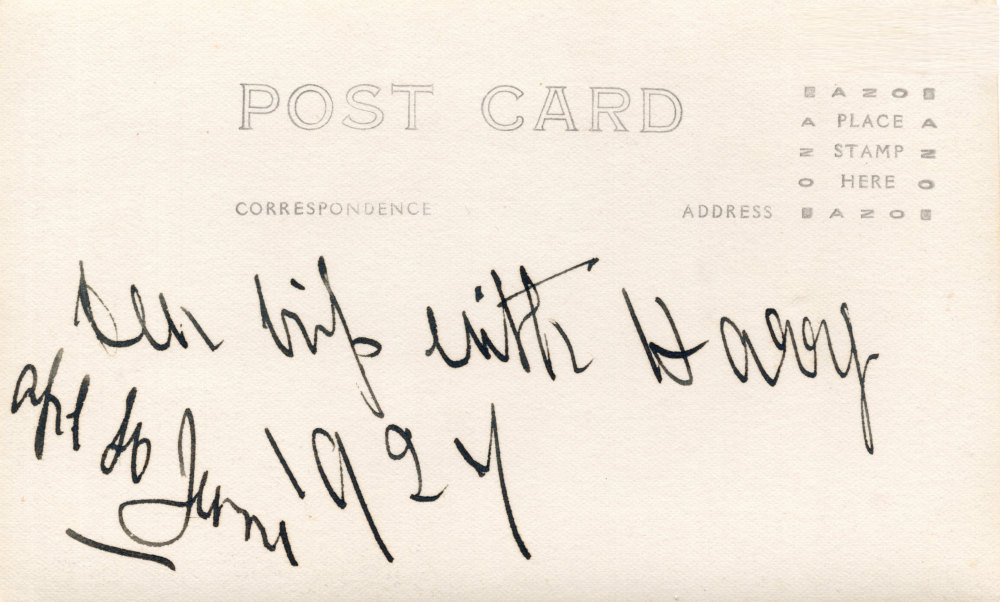 POST CARD
AZO
A PLACE A
Z STAMP Z
O HERE O
AZO
CORRESPONDENCE
ADDRESS
trip with Harry
to
1927